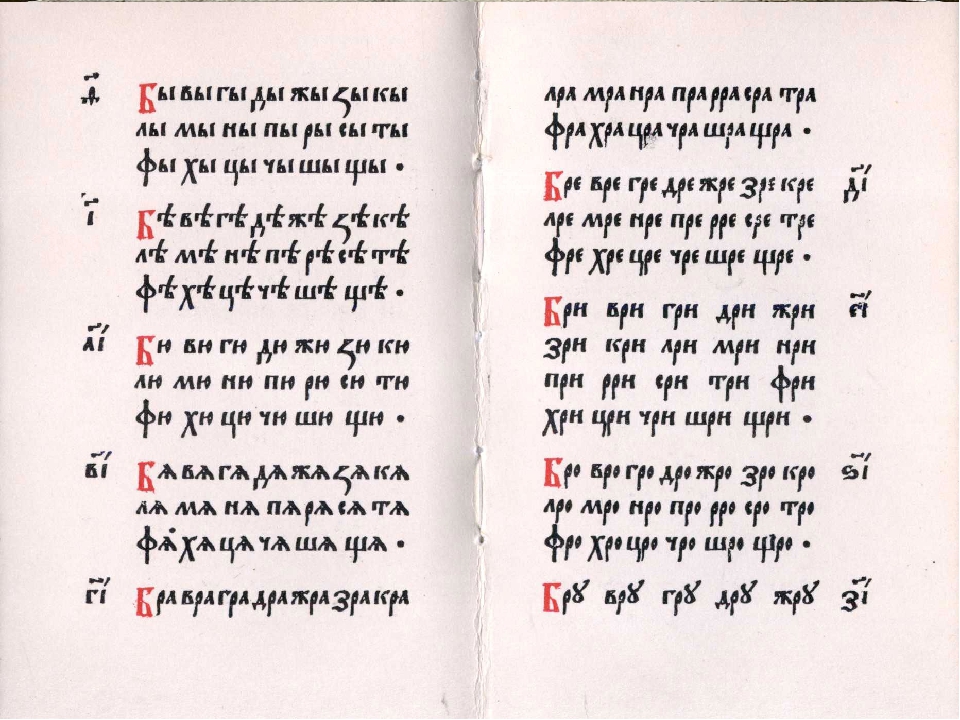 д҃ Бы вы гы ды жы ꙁы кы
лы мы ны пы ры сы ты
фы хы цы чы шы щы ·
і҃ Бѣ вѣ гѣ дѣ жѣ ꙁѣ кѣ
лѣ мѣ нѣ пѣ рѣ сѣ тѣ
фѣ хѣ цѣ чѣ шѣ щѣ ·
а҃і Бю вю гю дю жю ꙁю кю
лю мю ню пю рю сю тю
фю хю цю чю шю щю ·
в҃і Бѧ вѧ гѧ дѧ жѧ ꙁѧ кѧ
лѧ мѧ нѧ пѧ рѧ сѧ тѧ
фѧ хѧ цѧ чѧ шѧ щѧ ·
г҃і Бра вра гра дра жра зра кра
лра мра нра пра рра сра тра
фра хра цра чра шра щра ·
Бре вре гре дре жре зре кре д҃і
лре мре нре пре рре сре тре
фре хре цре чре шре щре ·
Бри ври гри дри жри є҃і
зри кри лри мри нри
при рри сри три фри
хри цри чри шри щри ·
Бро вро гро дро жро зро кро ѕ҃і
лро мро нро про рро сро тро
фро хро цро чро шро щро ·
Брꙋ врꙋ грꙋ дрꙋ жрꙋ з҃і